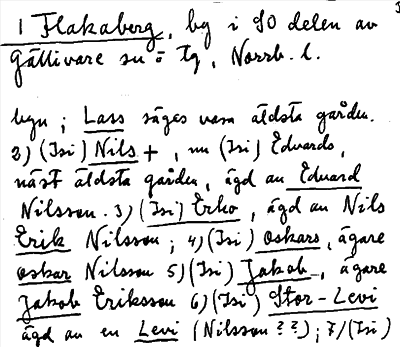 1 Flakaberg, by i SO delen av
Gällivare sn o tg, Norrb. l.
byn; Lass säges vara äldsta gården.
2) (Isi) Nils +, nu (Isi) Edvards,
näst äldsta gården, ägd av Edvard
Nilsson. 3) (Isi) Erko, ägd av Nils
Erik Nilsson; 4) (Isi) Oskars, ägare
Oskar Nilsson 5) (Isi) Jakob, ägare
Jakob Eriksson 6) (Isi) Stor-Levi
ägd av en Levi (Nilsson??); 7) (Isi)